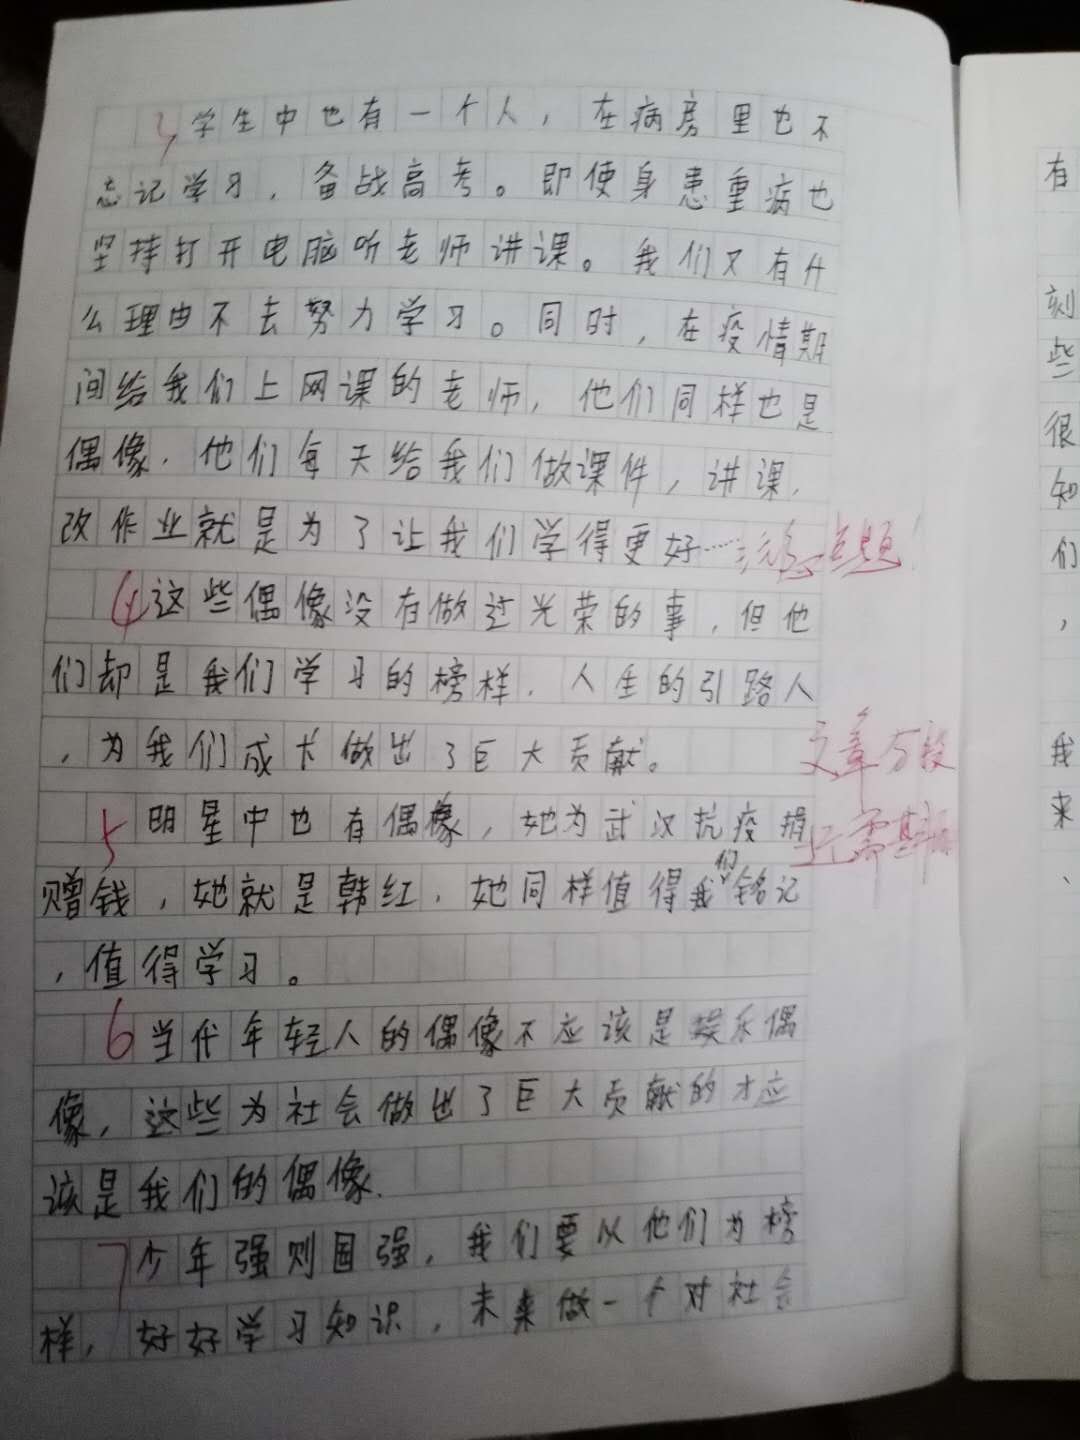 3 学生中也有一个人，在病房里也不
忘记学习，备战高考。即使身患重病也
坚持打开电脑听老师讲课。我们又有什
么理由不去努力学习。同时，在疫情期
间给我们上网课的老师，他们同样也是
偶像．他们每天给我们做课件，讲课．
改作业就是为了让我们学得更好……
点题！
4 这些偶像没有做过光荣的事，但他
们却是我们学习的榜样．人生的引路人
，为我们成长做出了巨大贡献。
文章
5 明星中也有偶像，她为武汉抗疫捐
赠钱，她就是韩红．她同样值得我们铭记
，值得学习。
6 当代年轻人的偶像不应该是娱乐偶
像，这些为社会做出了巨大贡献的才应
该是我们的偶像．
7 少年强则国强，我们要以他们为榜
样，好好学习知识，未来做一个对社会
有
刻
些
很
知
们
，
我
来
、